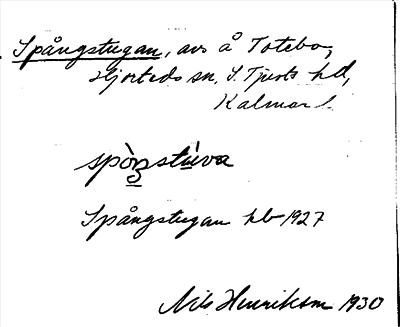 Spångstugan, avs å Totebo,
Hjorteds sn, S. Tjusts hd,
Kalmar l.
spòŋstùva
Spångstugan hb 1927
Nils Henrikson 1930